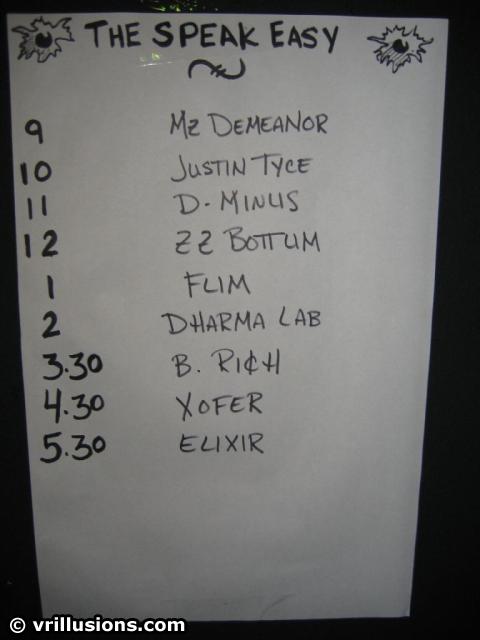 THE SPEAK EASY
9 MZ DEMEANOR
10 JUSTIN TYCE
11 D-MINUS
12 ZZ BOTTUM
1 FLIM
2 DHARMA LAB
3.30 B. RI¢H
4.30 XOFER
5.30 ELIXIR
© vrillusions.com